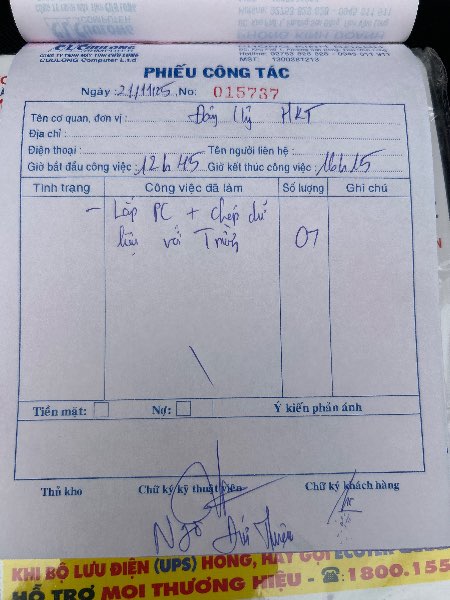 CUULONG
CÔNG TY TNHH MÁY TÍNH CỬU LONG
CUULONG Computer L.t.d
MST: 1300281213
PHIẾU CÔNG TÁC
Ngày 21/11/25, No: 015737
Tên cơ quan, đơn vị: Đảng Uỷ HKT
Địa chỉ:
Điện thoại: Tên người liên hệ:
Giờ bắt đầu công việc: 12h45 Giờ kết thúc công việc: 16h15
Tình trạng Công việc đã làm Số lượng Ghi chú
– Lắp PC + chép dữ 01
liệu với
Tiền mặt: Nợ: Ý kiến phản ánh
Thủ kho Chữ ký kỹ thuật viên Chữ ký khách hàng
Ngô
KHI BỘ LƯU ĐIỆN (UPS) HỎNG, HÃY GỌI
HỖ TRỢ MỌI THƯƠNG HIỆU - ☎:1800.155